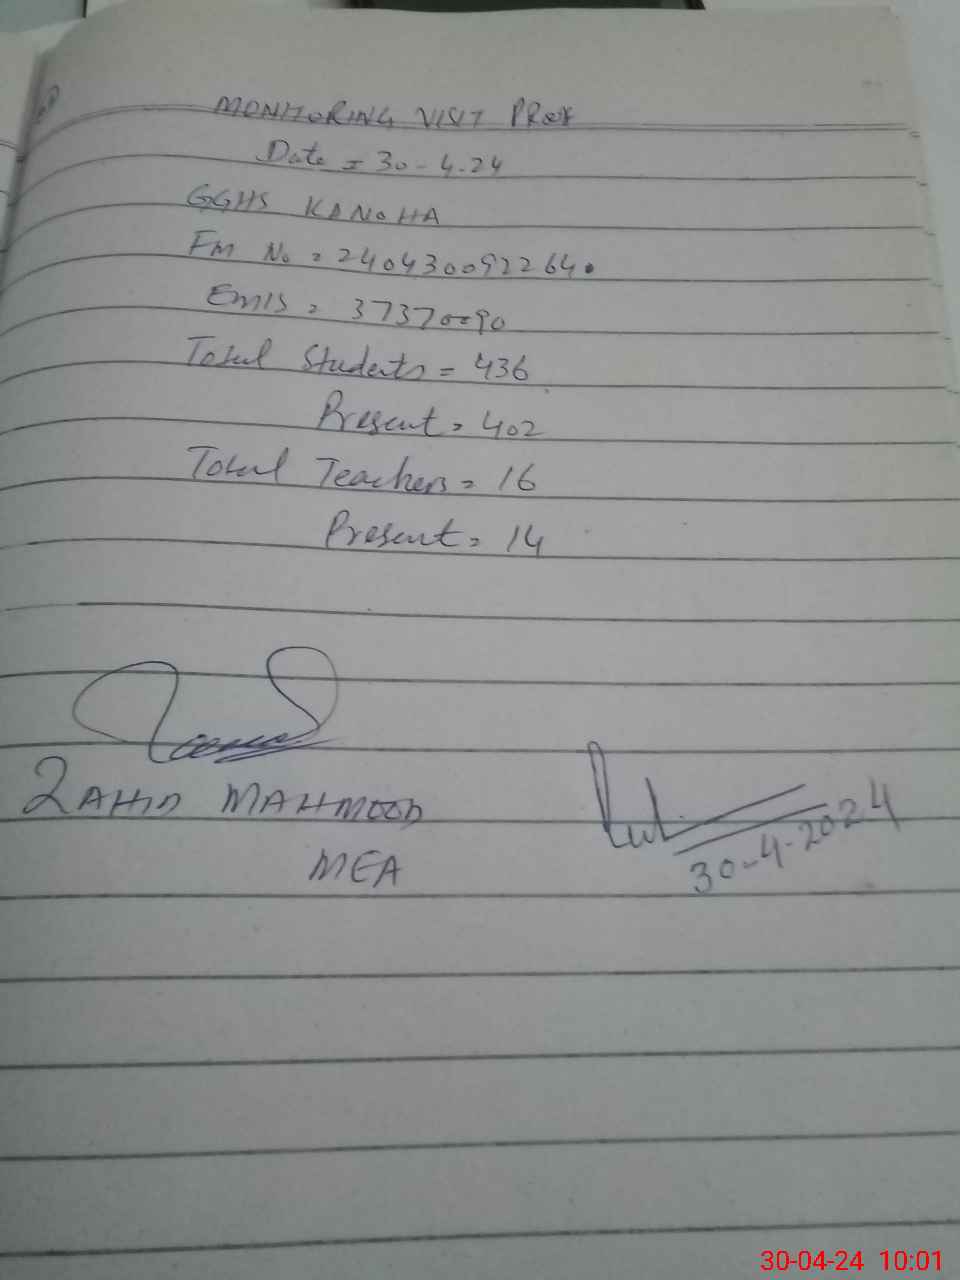 MONITORING VISIT PROF
Date = 30-4-24
GGHS KANOHA
FM No = 240430092264
EMIS = 37370090
Total Students = 436
Present = 402
Total Teachers = 16
Present = 14
ZAHID MAHMOOD
MEA
30-4-2024
30-04-24 10:01